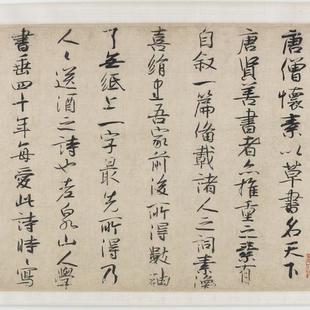 唐僧懷素以草書名天下
唐賢善書者亦推重之嘗有
自叙一篇備載諸人之詞素
喜絹書吾家前後所得數軸
了無紙上一字最先所得乃
人〻送酒之詩也老泉山人學
書垂四十年每愛此詩時〻寫